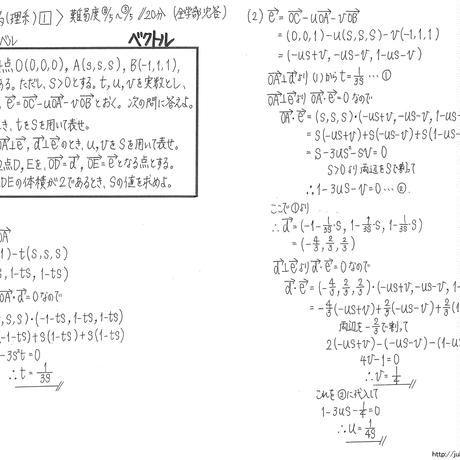 (理系) 1 〉 難易度 /20分 (全学部必答)
ベル
ベクトル
点O(0,0,0), A(s,s,s), B(-1,1,1),
ある。ただし、s>0とする。t,u,vを実数とし、
, e=OC-uOA-vOBとおく。次の問に答えよ。
とき、tをsを用いて表せ。
OA⊥e, d⊥eのとき、u,vをsを用いて表せ。
2点D,Eを、OD=d, OE=eとなる点とする。
DEの体積が2であるとき、sの値を求めよ。
OA
1)-t(s,s,s)
s, 1-ts, 1-ts)
OA・d=0なので
s,s,s)・(-1-ts, 1-ts, 1-ts)
-1-ts)+s(1-ts)+s(1-ts)
-3s²t=0
∴t=1/3s
(2) e=OC-uOA-vOB
=(0,0,1)-u(s,s,s)-v(-1,1,1)
=(-us+v, -us-v, 1-us-v)
OA⊥dより (1)からt=1/3s …①
OA⊥eより OA・e=0なので
OA・e=(s,s,s)・(-us+v, -us-v, 1-us-
=s(-us+v)+s(-us-v)+s(1-us-
=s-3us²-sv=0
s>0より両辺をsで割って
∴1-3us-v=0 …②
ここで①より
∴d=(-1-1/3s・s, 1-1/3s・s, 1-1/3s・s)
=(-4/3, 2/3, 2/3)
d⊥eより d・e=0なので
d・e=(-4/3, 2/3, 2/3)・(-us+v, -us-v, 1-
=-4/3(-us+v)+2/3(-us-v)+2/3(1
両辺を-2/3で割って
2(-us+v)-(-us-v)-(1-us
4v-1=0
∴v=1/4
これを②に代入して
1-3us-1/4=0
∴u=1/4s
http://ju